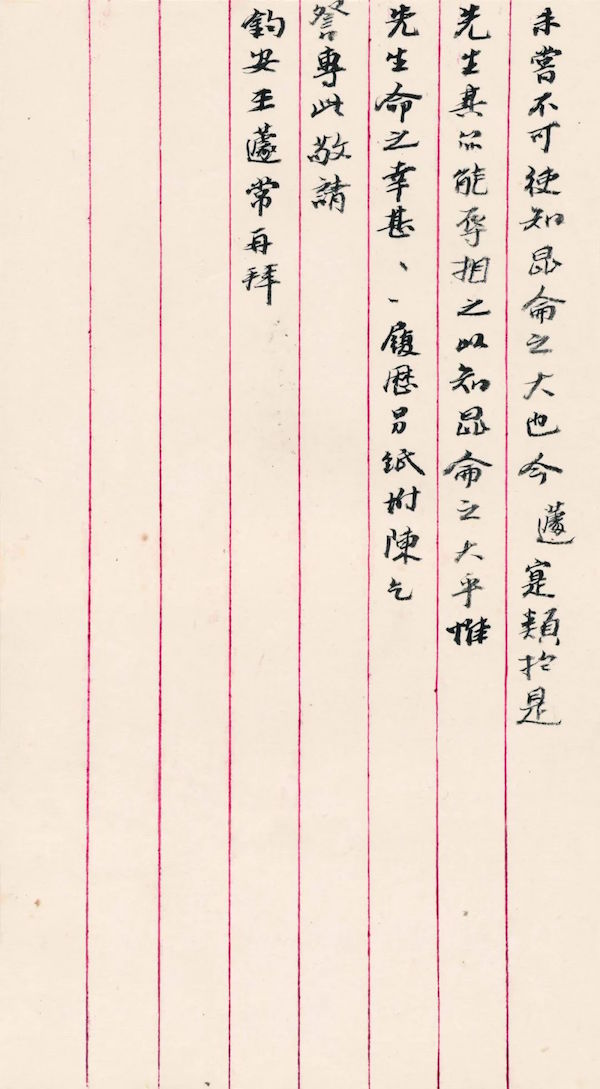 未嘗不可使知昆侖之大也今蘧寔類於是
先生其亦能辱招之以知昆侖之大乎惟
先生命之幸甚、、履歷另紙坿陳乞
詧專此敬請
鈞安王蘧常再拜